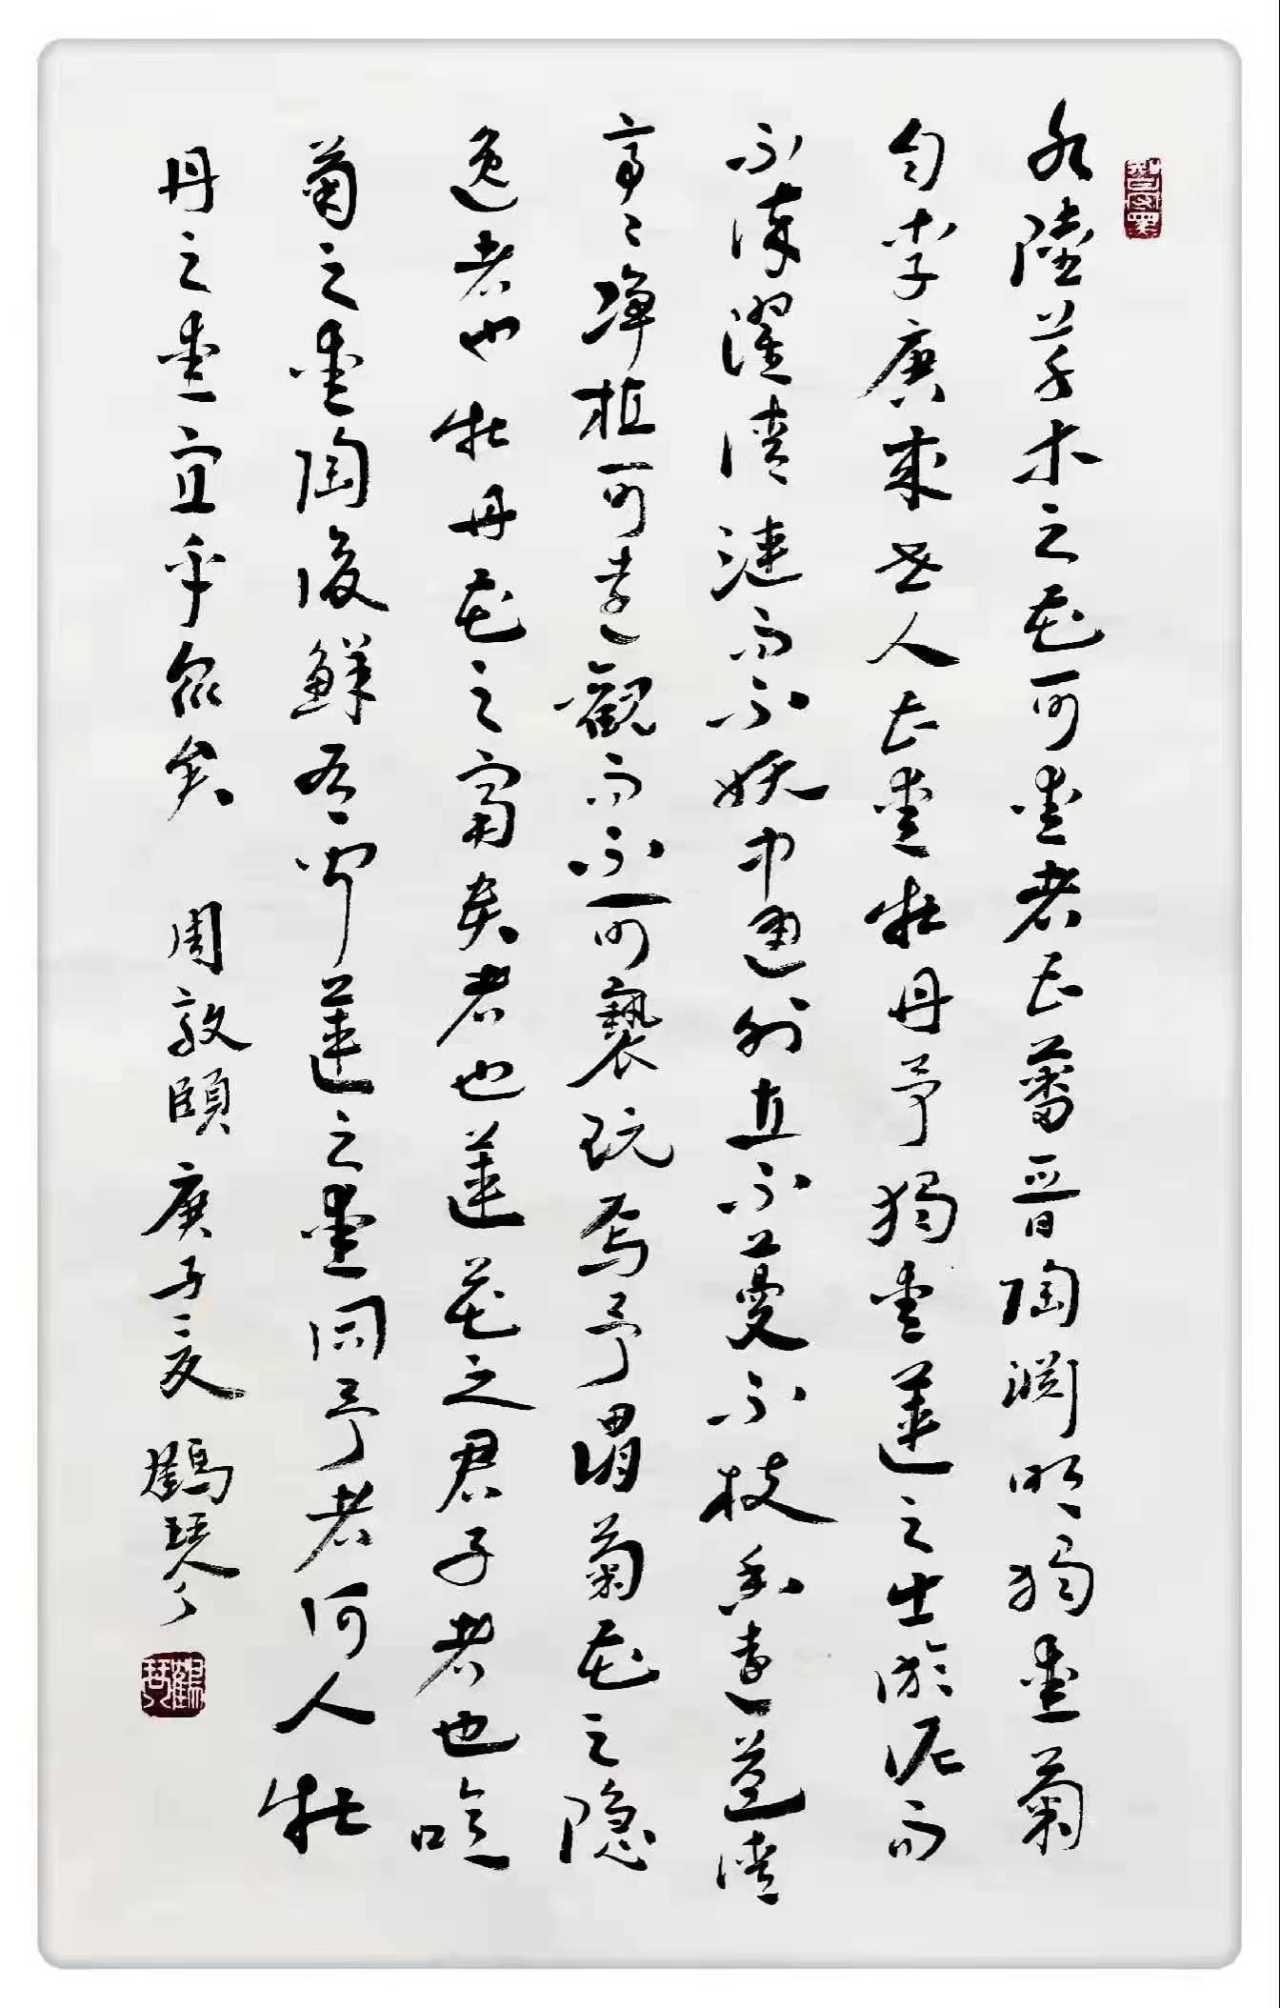 水陸草木之花可愛者甚蕃晉陶淵明獨愛菊
自李唐來世人甚愛牡丹予獨愛蓮之出淤泥而
不染濯清漣而不妖中通外直不蔓不枝香遠益清
亭々淨植可遠觀而不可褻玩焉予謂菊花之隱
逸者也牡丹花之富貴者也蓮花之君子者也噫
菊之愛陶後鮮有聞蓮之愛同予者何人牡
丹之愛宜乎眾矣 周敦頤 庚子之夏 鶴琴
鶴琴